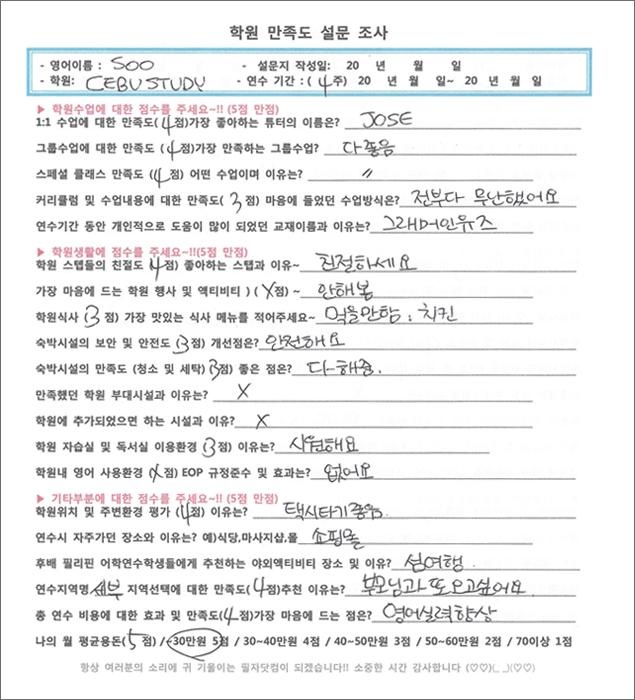 학원 만족도 설문 조사
- 영어이름 : SOO - 설문지 작성일: 20 년 월 일
- 학원: CEBU STUDY - 연수 기간 : ( 4 주) 20 년 월 일~ 20 년 월 일
▶ 학원수업에 대한 점수를 주세요~!! (5점 만점)
1:1 수업에 대한 만족도( 4 점)가장 좋아하는 튜터의 이름은? JOSE
그룹수업에 대한 만족도 ( 4 점)가장 만족하는 그룹수업? 다좋음
스페셜 클래스 만족도 ( 4 점) 어떤 수업이며 이유는? 〃
커리큘럼 및 수업내용에 대한 만족도( 3 점) 마음에 들었던 수업방식은? 전부다 무난했어요
연수기간 동안 개인적으로 도움이 많이 되었던 교재이름과 이유는? 그래머인유즈
▶ 학원생활에 점수를 주세요~!!(5점 만점)
학원 스텝들의 친절도 4 점) 좋아하는 스탭과 이유~ 친절하세요
가장 마음에 드는 학원 행사 및 액티비티 ) ( X 점) ~ 안해봄
학원식사 ( 3 점) 가장 맛있는 식사 메뉴를 적어주세요~ 먹을만함 : 치킨
숙박시설의 보안 및 안전도 ( 3 점) 개선점은? 안전해요
숙박시설의 만족도 (청소 및 세탁) ( 3 점) 좋은 점은? 다-해줌.
만족했던 학원 부대시설과 이유는? X
학원에 추가되었으면 하는 시설과 이유? X
학원 자습실 및 독서실 이용환경 ( 3 점) 이유는? 시원해요
학원내 영어 사용환경 ( X 점) EOP 규정준수 및 효과는? 없어요
▶ 기타부분에 대한 점수를 주세요~!! (5점 만점)
학원위치 및 주변환경 평가 ( 4 점) 이유는? 택시타기좋음.
연수시 자주가던 장소와 이유는? 예)식당,마사지샵,몰 쇼핑몰
후배 필리핀 어학연수학생들에게 추천하는 야외액티비티 장소 및 이유? 섬여행.
연수지역명 세부 지역선택에 대한 만족도 ( 4 점)추천 이유는? 부모님과 또 오고싶어요.
총 연수 비용에 대한 효과 및 만족도( 4 점)가장 마음에 드는 점은? 영어실력향상
나의 월 평균용돈( 5 점) / ~30만원 5점 / 30~40만원 4점 / 40~50만원 3점 / 50~60만원 2점 / 70이상 1점
항상 여러분의 소리에 귀 기울이는 필자닷컴이 되겠습니다!! 소중한 시간 감사합니다 (♡♡)(_ _)(♡♡)